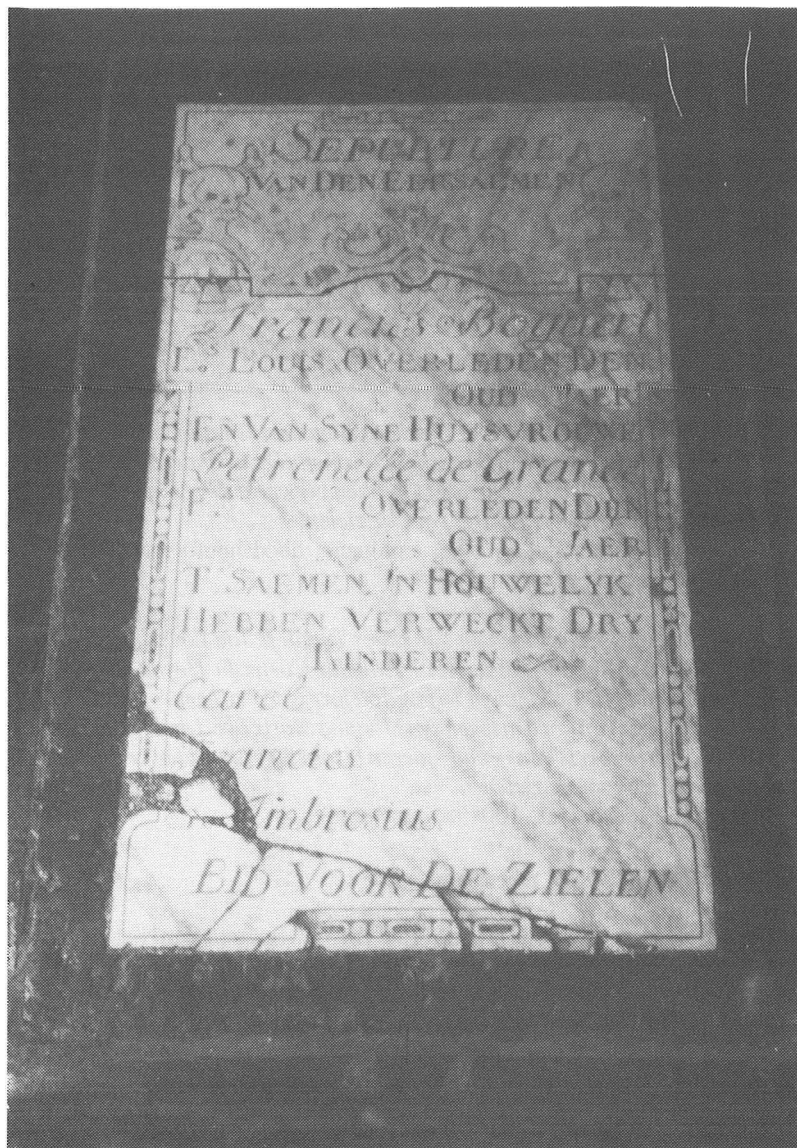 SEPULTURE
VAN DEN EERSAEMEN
Francies Bogaert
F.ˢ LOUIS OVERLEDEN DEN
OUD JAER
EN VAN SYNE HUYSVROUWE
Petronelle de Grande
F. OVERLEDEN DEN
OUD JAER
T' SAEMEN IN HOUWELYK
HEBBEN VERWECKT DRY
KINDEREN
Carel
Francies
Ambrosius
BID VOOR DE ZIELEN